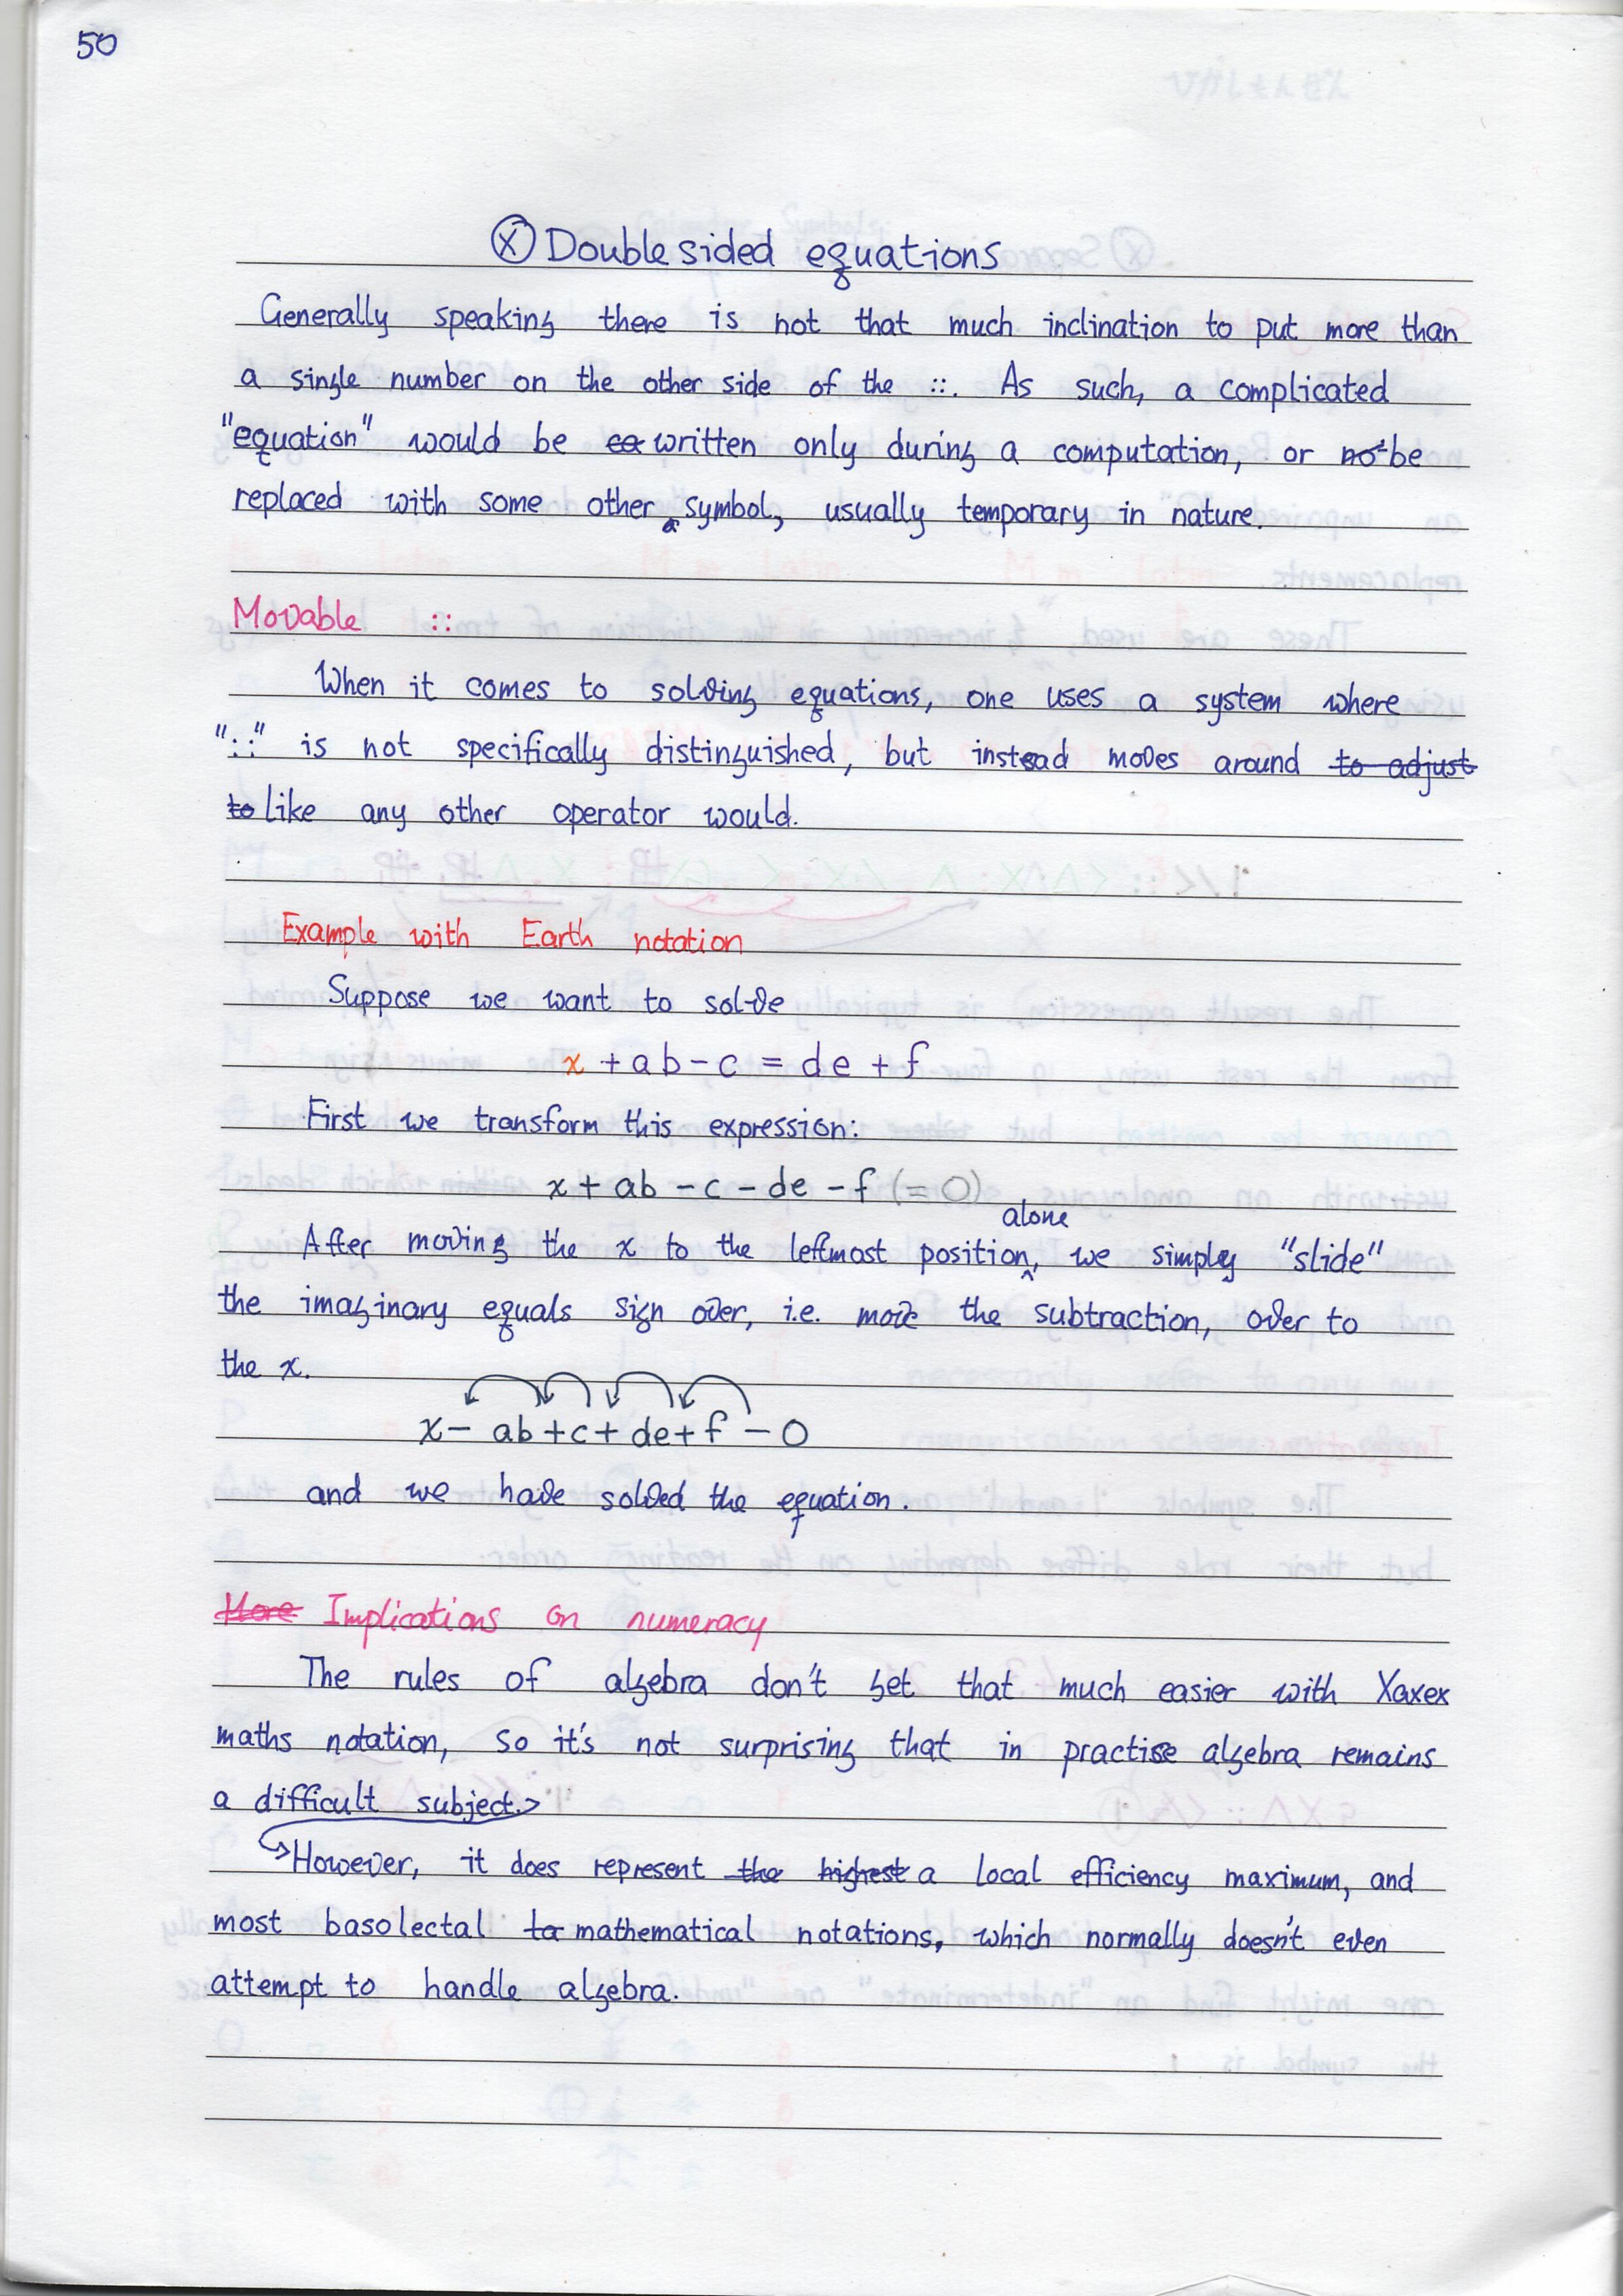 50
Ⓧ Double sided equations
Generally speaking there is not that much inclination to put more than
a single number on the other side of the ::. As such, a complicated
"equation" would be written only during a computation, or be
replaced with some other symbol, usually temporary in nature.
Movable ::
When it comes to solving equations, one uses a system where
"::" is not specifically distinguished, but instead moves around to adjust
to like any other operator would.
Example with Earth notation
Suppose we want to solve
x + ab - c = de + f
First we transform this expression:
x + ab - c - de - f (= 0)
alone
After moving the x to the leftmost position, we simply "slide"
the imaginary equals sign over, i.e. move the subtraction, over to
the x.
x - ab + c + de + f - 0
and we have solved the equation.
More Implications on numeracy
The rules of algebra don't get that much easier with Xaxex
maths notation, so it's not surprising that in practise algebra remains
a difficult subject.
However, it does represent the highest a local efficiency maximum, and
most basolectal to mathematical notations, which normally doesn't even
attempt to handle algebra.